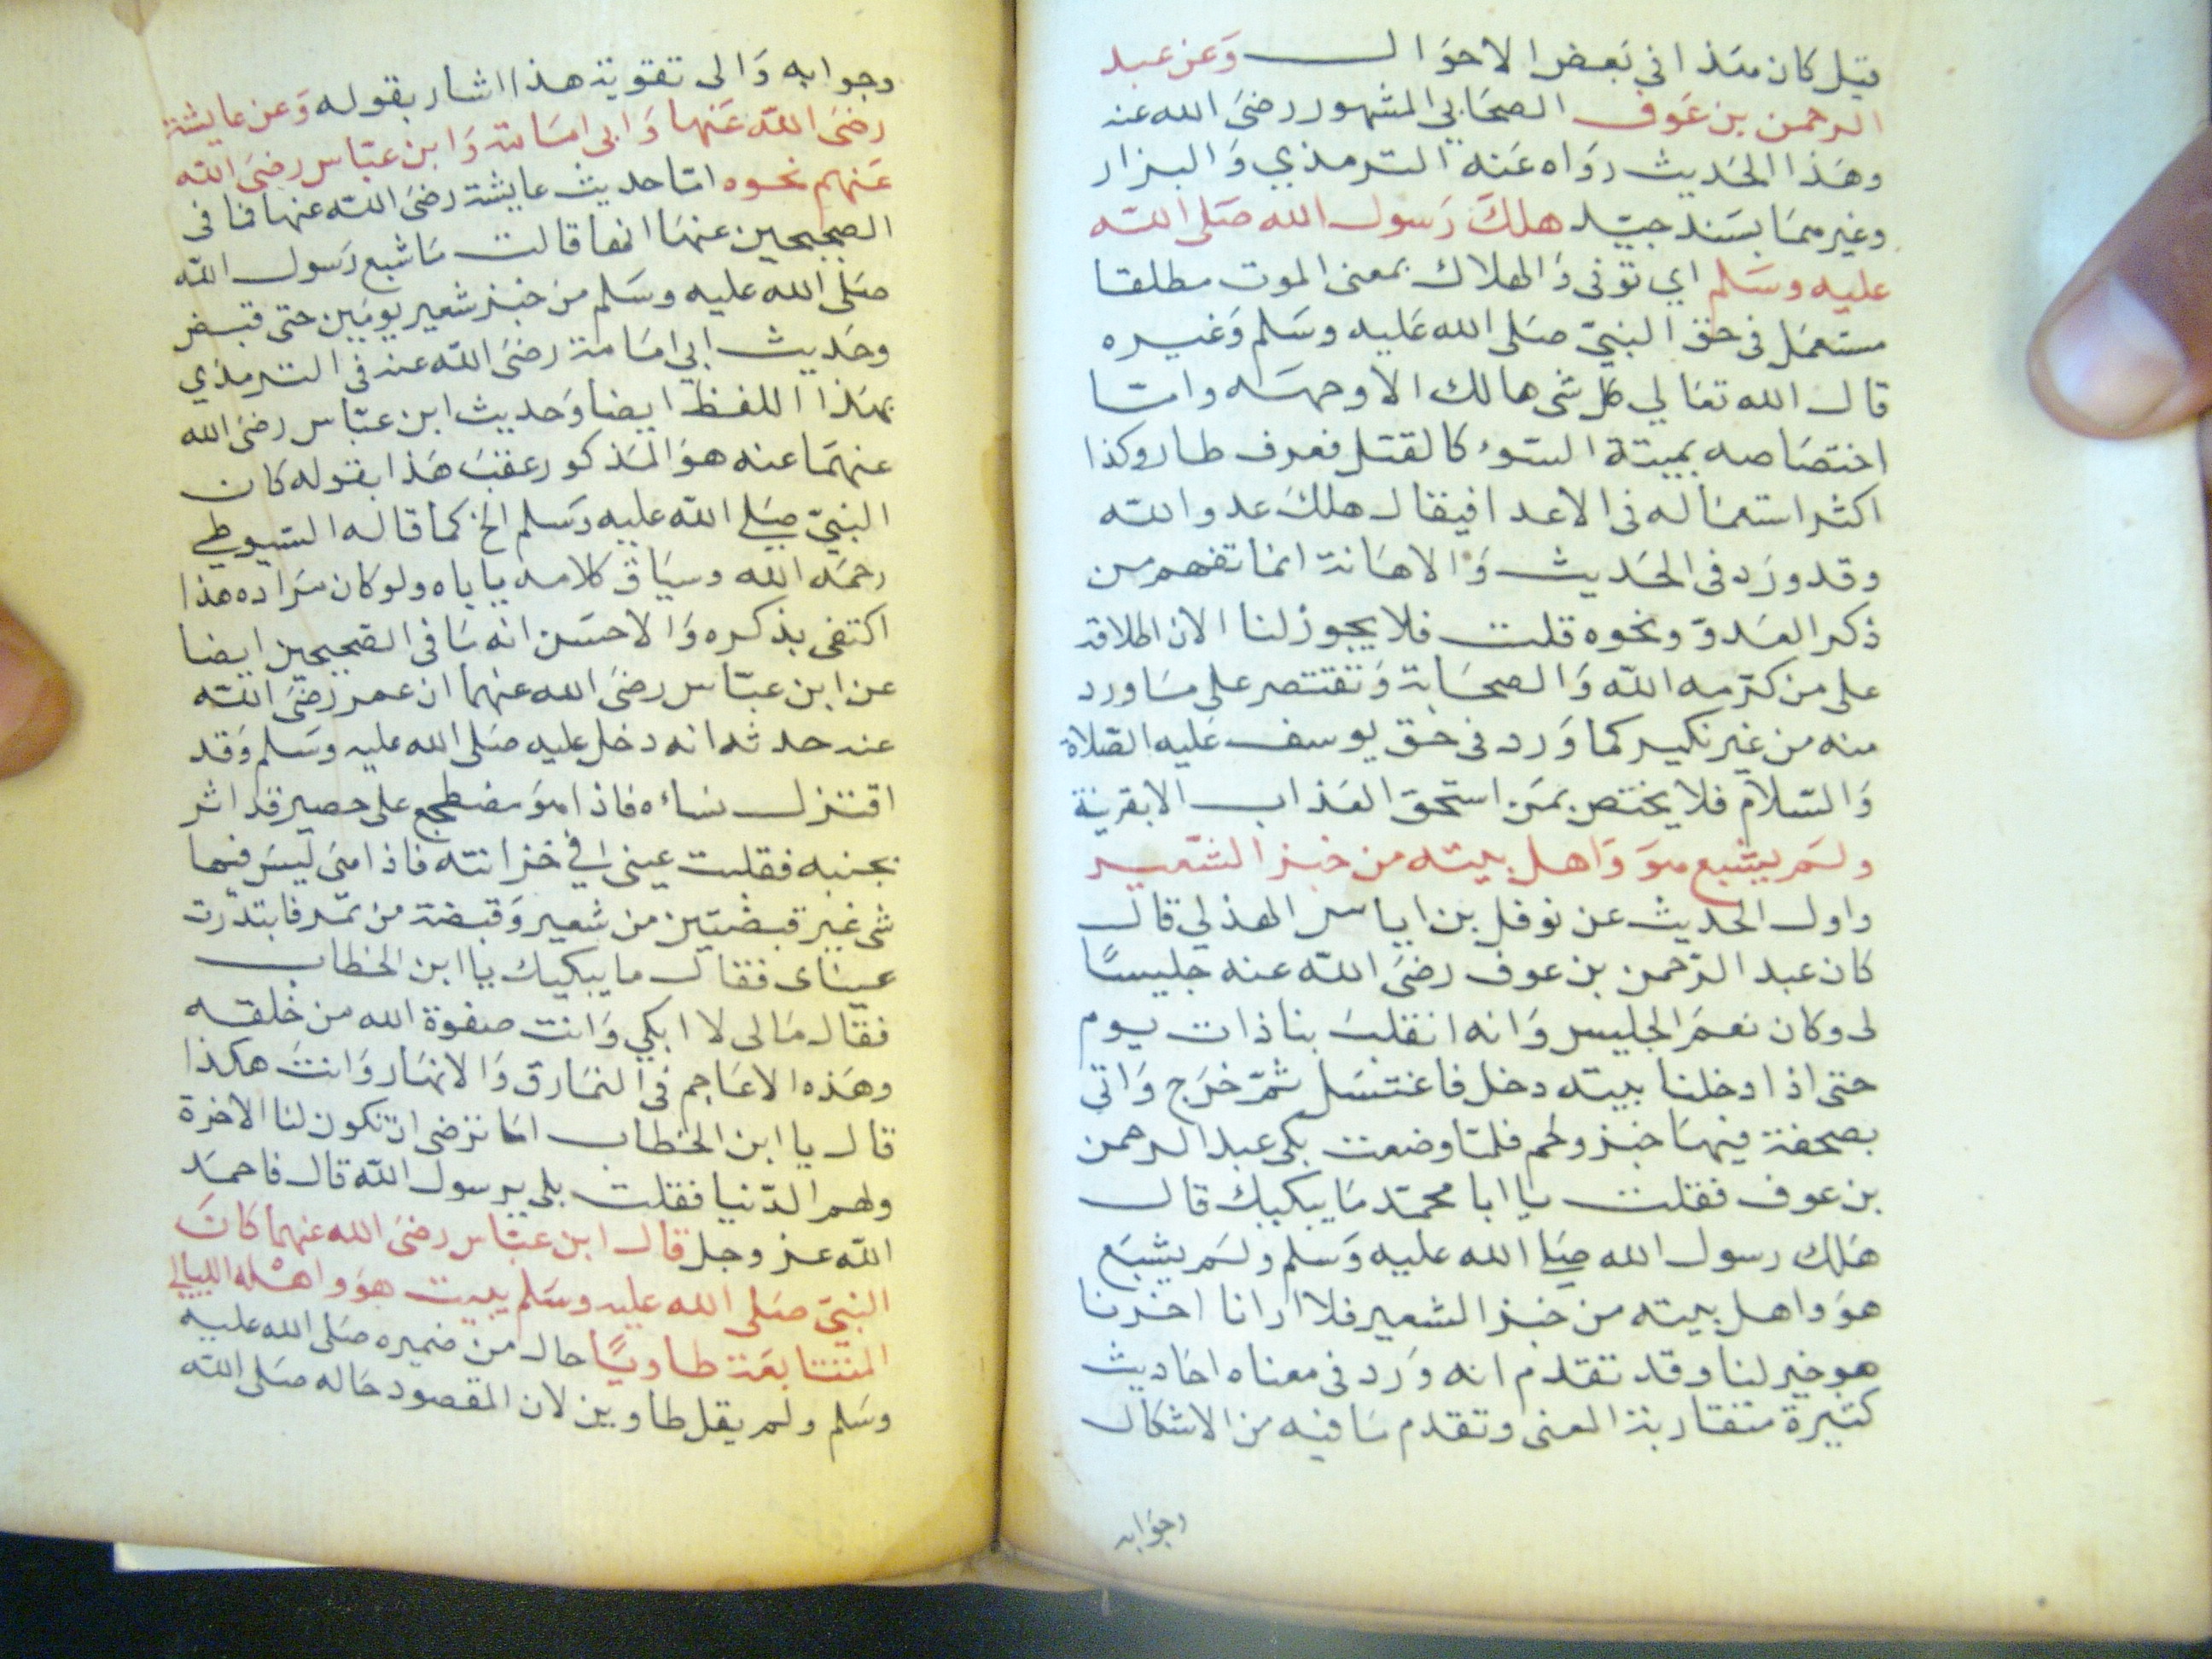 قيل كان هذا في بعض الاحوال وعن عبد
الرحمن بن عوف الصحابي المشهور رضى الله عنه
وهذا الحديث رواه عنه الترمذي والبزار
وغيرهما بسند جيّد هلك رسول الله صلى الله
عليه وسلم اي توفى والهلاك بمعنى الموت مطلقا
مستعمل في حق النبيّ صلى الله عليه وسلم وغيره
قال الله تعالي كل شى هالك الا وجهه واما
اختصاصه بميتة السوء كالقتل فعرف طار وكذا
اكثر استعماله في الاعدا فيقال هلك عدو الله
وقد ورد في الحديث والاهانة انما تفهم من
ذكر العدوّ ونحوه قلت فلا يجوز لنا الان اطلاقه
على من كرّمه الله والصحابة ونقتصر على ما ورد
منه من غير نكير كما ورد في حق يوسف عليه الصلاة
والسّلام فلا يختص بمن استحق العذاب الا بقرينة
ولم يشبع هو واهل بيته من خبز الشعير
واول الحديث عن نوفل بن اياس الهذلي قال
كان عبد الرّحمن بن عوف رضى الله عنه جليسًا
لى وكان نعم الجليس وانه انقلب بنا ذات يوم
حتى اذا دخلنا بيته دخل فاغتسل ثمّ خرج واتي
بصحفة فيها خبز ولحم فلمّا وضعت بكى عبد الرحمن
بن عوف فقلت يا ابا محمّد ما يبكيك قال
هلك رسول الله صلى الله عليه وسلم ولم يشبع
هو واهل بيته من خبز الشعير فلا ارانا اخرنا
هو خير لنا وقد تقدم انه ورد في معناه احاديث
كثيرة متقاربة المعنى وتقدم ما فيه من الاشكال
وجوابه
وجوابه والى تقوية هذا اشار بقوله وعن عايشة
رضى الله عنها وابى امامة وابن عبّاس رضى الله
عنهم نحوه امّا حديث عايشة رضى الله عنها فما في
الصحيحين عنها انها قالت ما شبع رسول الله
صلى الله عليه وسلم من خبز شعير يومين حتى قبض
وحديث ابي امامة رضى الله عنه في الترمذي
بهذا اللفظ ايضا وحديث ابن عبّاس رضى الله
عنهما عنه هو المذكور عقب هذا بقوله كان
النبيّ صلى الله عليه وسلم الخ كما قاله السيوطي
رحمه الله وسياق كلامه ياباه ولو كان مراده هذا
اكتفى بذكره والاحسن انه ما في الصّحيحين ايضا
عن ابن عبّاس رضى الله عنهما ان عمر رضى الله
عنه حدثه انه دخل عليه صلى الله عليه وسلم وقد
اقتزل نساءه فاذا هو مضطجع على حصير قد اثر
بجنبه فقلبت عينى في خزانته فاذا هى ليس فيها
شى غير قبضتين من شعير وقبضة من تمر فابتدرت
عيناى فقال ما يبكيك يا ابن الخطاب
فقال مالى لا ابكي وانت صفوة الله من خلقه
وهذه الاعاجم في النمارق والانهار وانت هكذا
قال يا ابن الخطاب اما ترضى ان تكون لنا الاخرة
ولهم الدّنيا فقلت بلى يرسول الله قال فاحمد
الله عز وجل قال ابن عبّاس رضى الله عنهما كان
النبيّ صلى الله عليه وسلم يبيت هو واهله الليالى
المتتابعة طاويًا حال من ضميره صلى الله عليه
وسلم ولم يقل طاوين لان المقصود حاله صلى الله